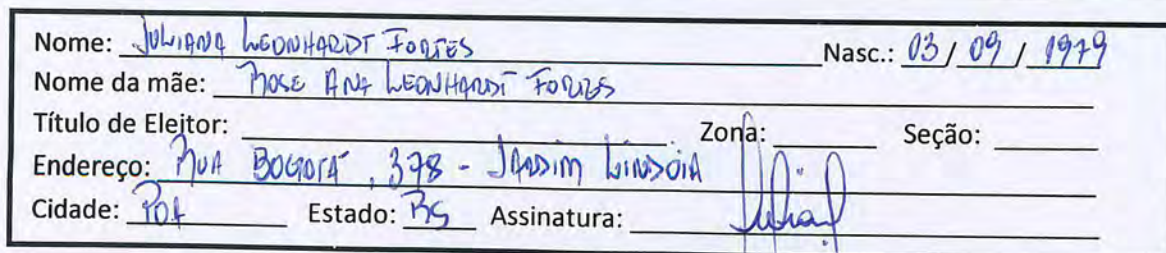 Nome: JULIANA LEONHARDT FORTES Nasc.: 03/09/1979
Nome da mãe: ROSE ANA LEONHARDT FORTES
Título de Eleitor: Zona: Seção:
Endereço: RUA BOGOTÁ, 378 - JARDIM LINDÓIA
Cidade: POA Estado: RS Assinatura: